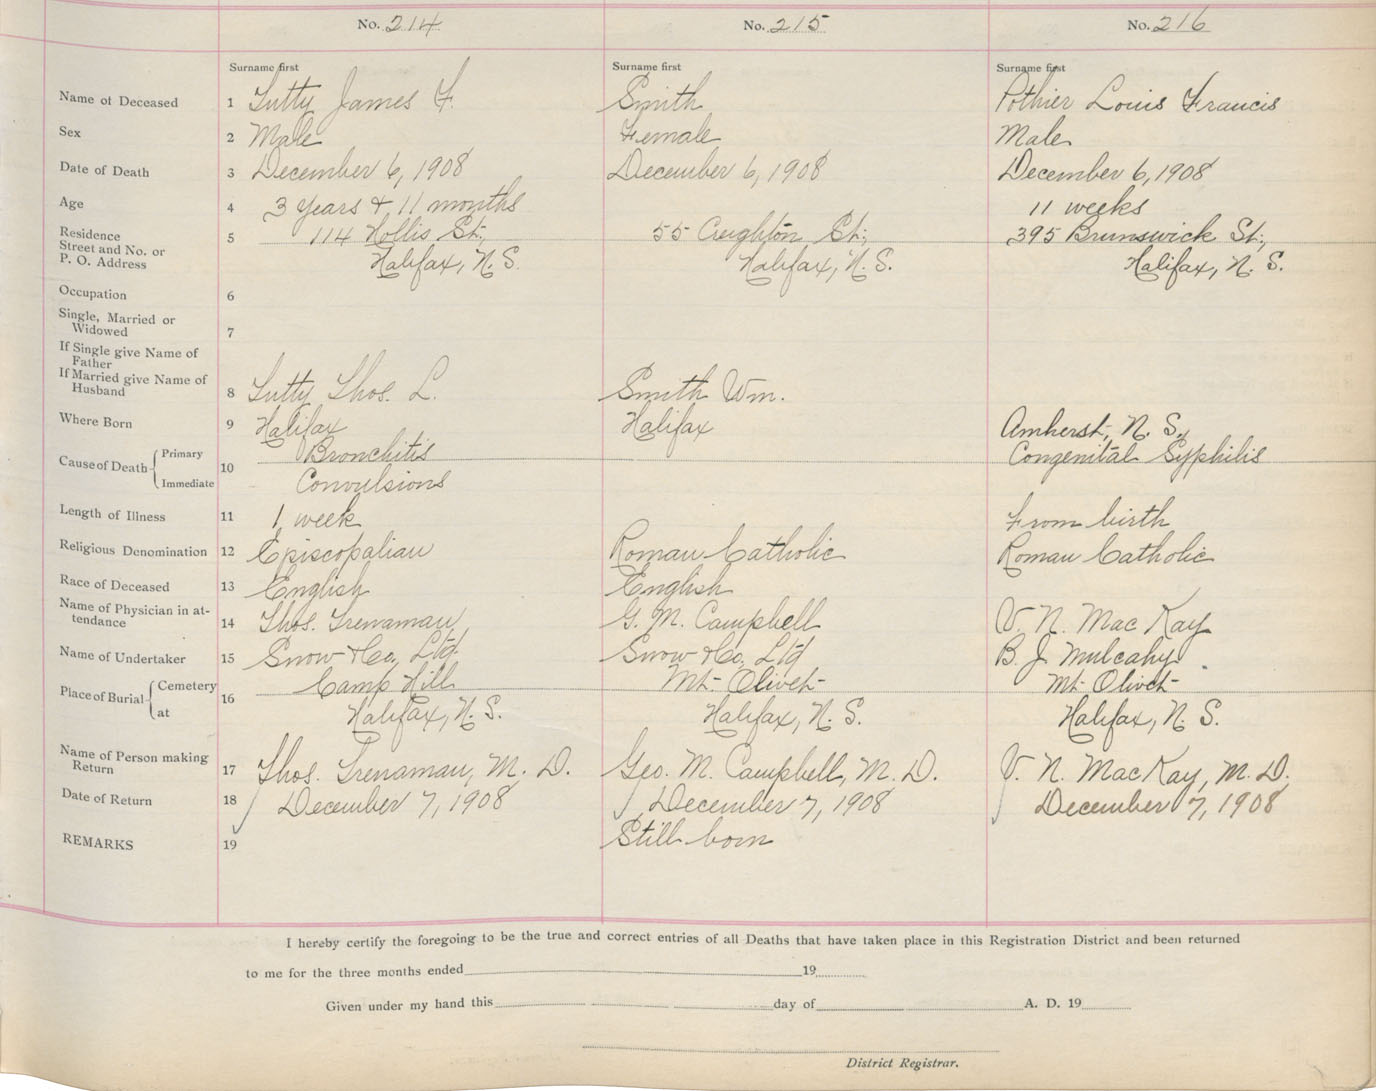 No. 214
No. 215
No. 216
Surname first
Surname first
Surname first
Name of Deceased 1 Tutty James F. Smith Pothier Louis Francis
Sex 2 Male Female Male
Date of Death 3 December 6, 1908 December 6, 1908 December 6, 1908
Age 4 3 years & 11 months 11 weeks
Residence 5 114 Hollis St., 55 Creighton St., 395 Brunswick St.,
Street and No. or
P. O. Address Halifax, N. S. Halifax, N. S. Halifax, N. S.
Occupation 6
Single, Married or
Widowed 7
If Single give Name of
Father
If Married give Name of
Husband 8 Tutty Thos. L. Smith Wm.
Where Born 9 Halifax Halifax Amherst, N. S.
Cause of Death Primary 10 Bronchitis Congenital Syphilis
Immediate Convulsions
Length of Illness 11 1 week From birth
Religious Denomination 12 Episcopalian Roman Catholic Roman Catholic
Race of Deceased 13 English English
Name of Physician in at-
tendance 14 Thos. Trenaman G. M. Campbell V. N. MacKay
Name of Undertaker 15 Snow & Co, Ltd. Snow & Co, Ltd B. J. Mulcahy
Place of Burial Cemetery 16 Camp Hill Mt. Olivet Mt. Olivet
at Halifax, N. S. Halifax, N. S. Halifax, N. S.
Name of Person making
Return 17 Thos. Trenaman, M. D. Geo. M. Campbell, M. D. V. N. MacKay, M. D.
Date of Return 18 December 7, 1908 December 7, 1908 December 7, 1908
REMARKS 19 Still born
I hereby certify the foregoing to be the true and correct entries of all Deaths that have taken place in this Registration District and been returned
to me for the three months ended 19
Given under my hand this day of A. D. 19
District Registrar.